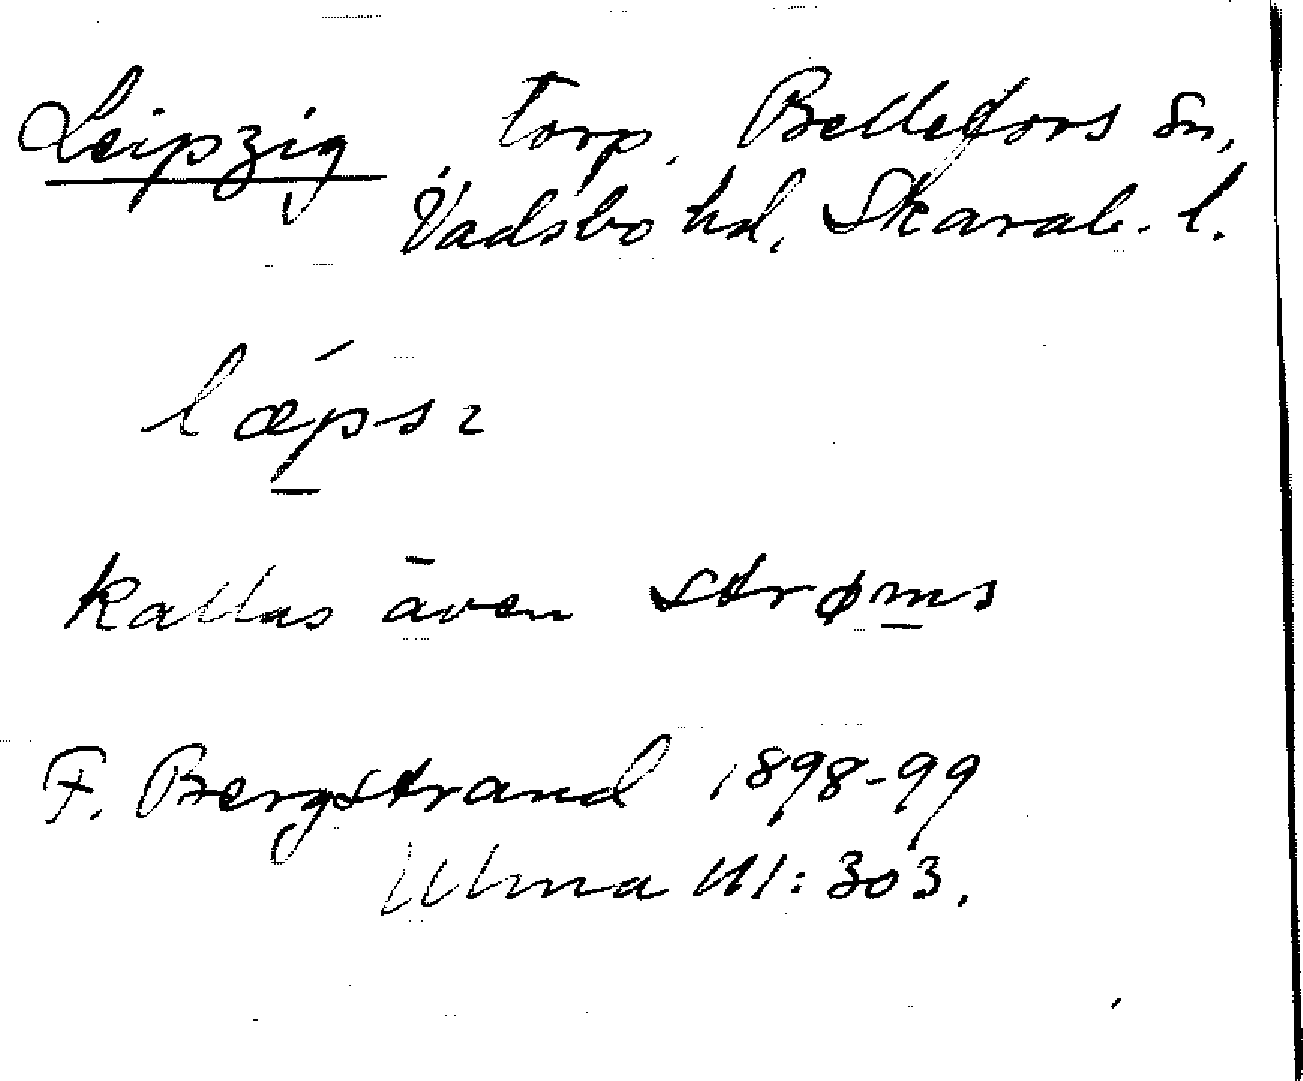 Leipzig, torp. Bellefors sn,
Vadsbo hd, Skarab. l.
lǽpsı
kallas även strøms
F. Bergstrand 1898-99
Ulma 111:303.